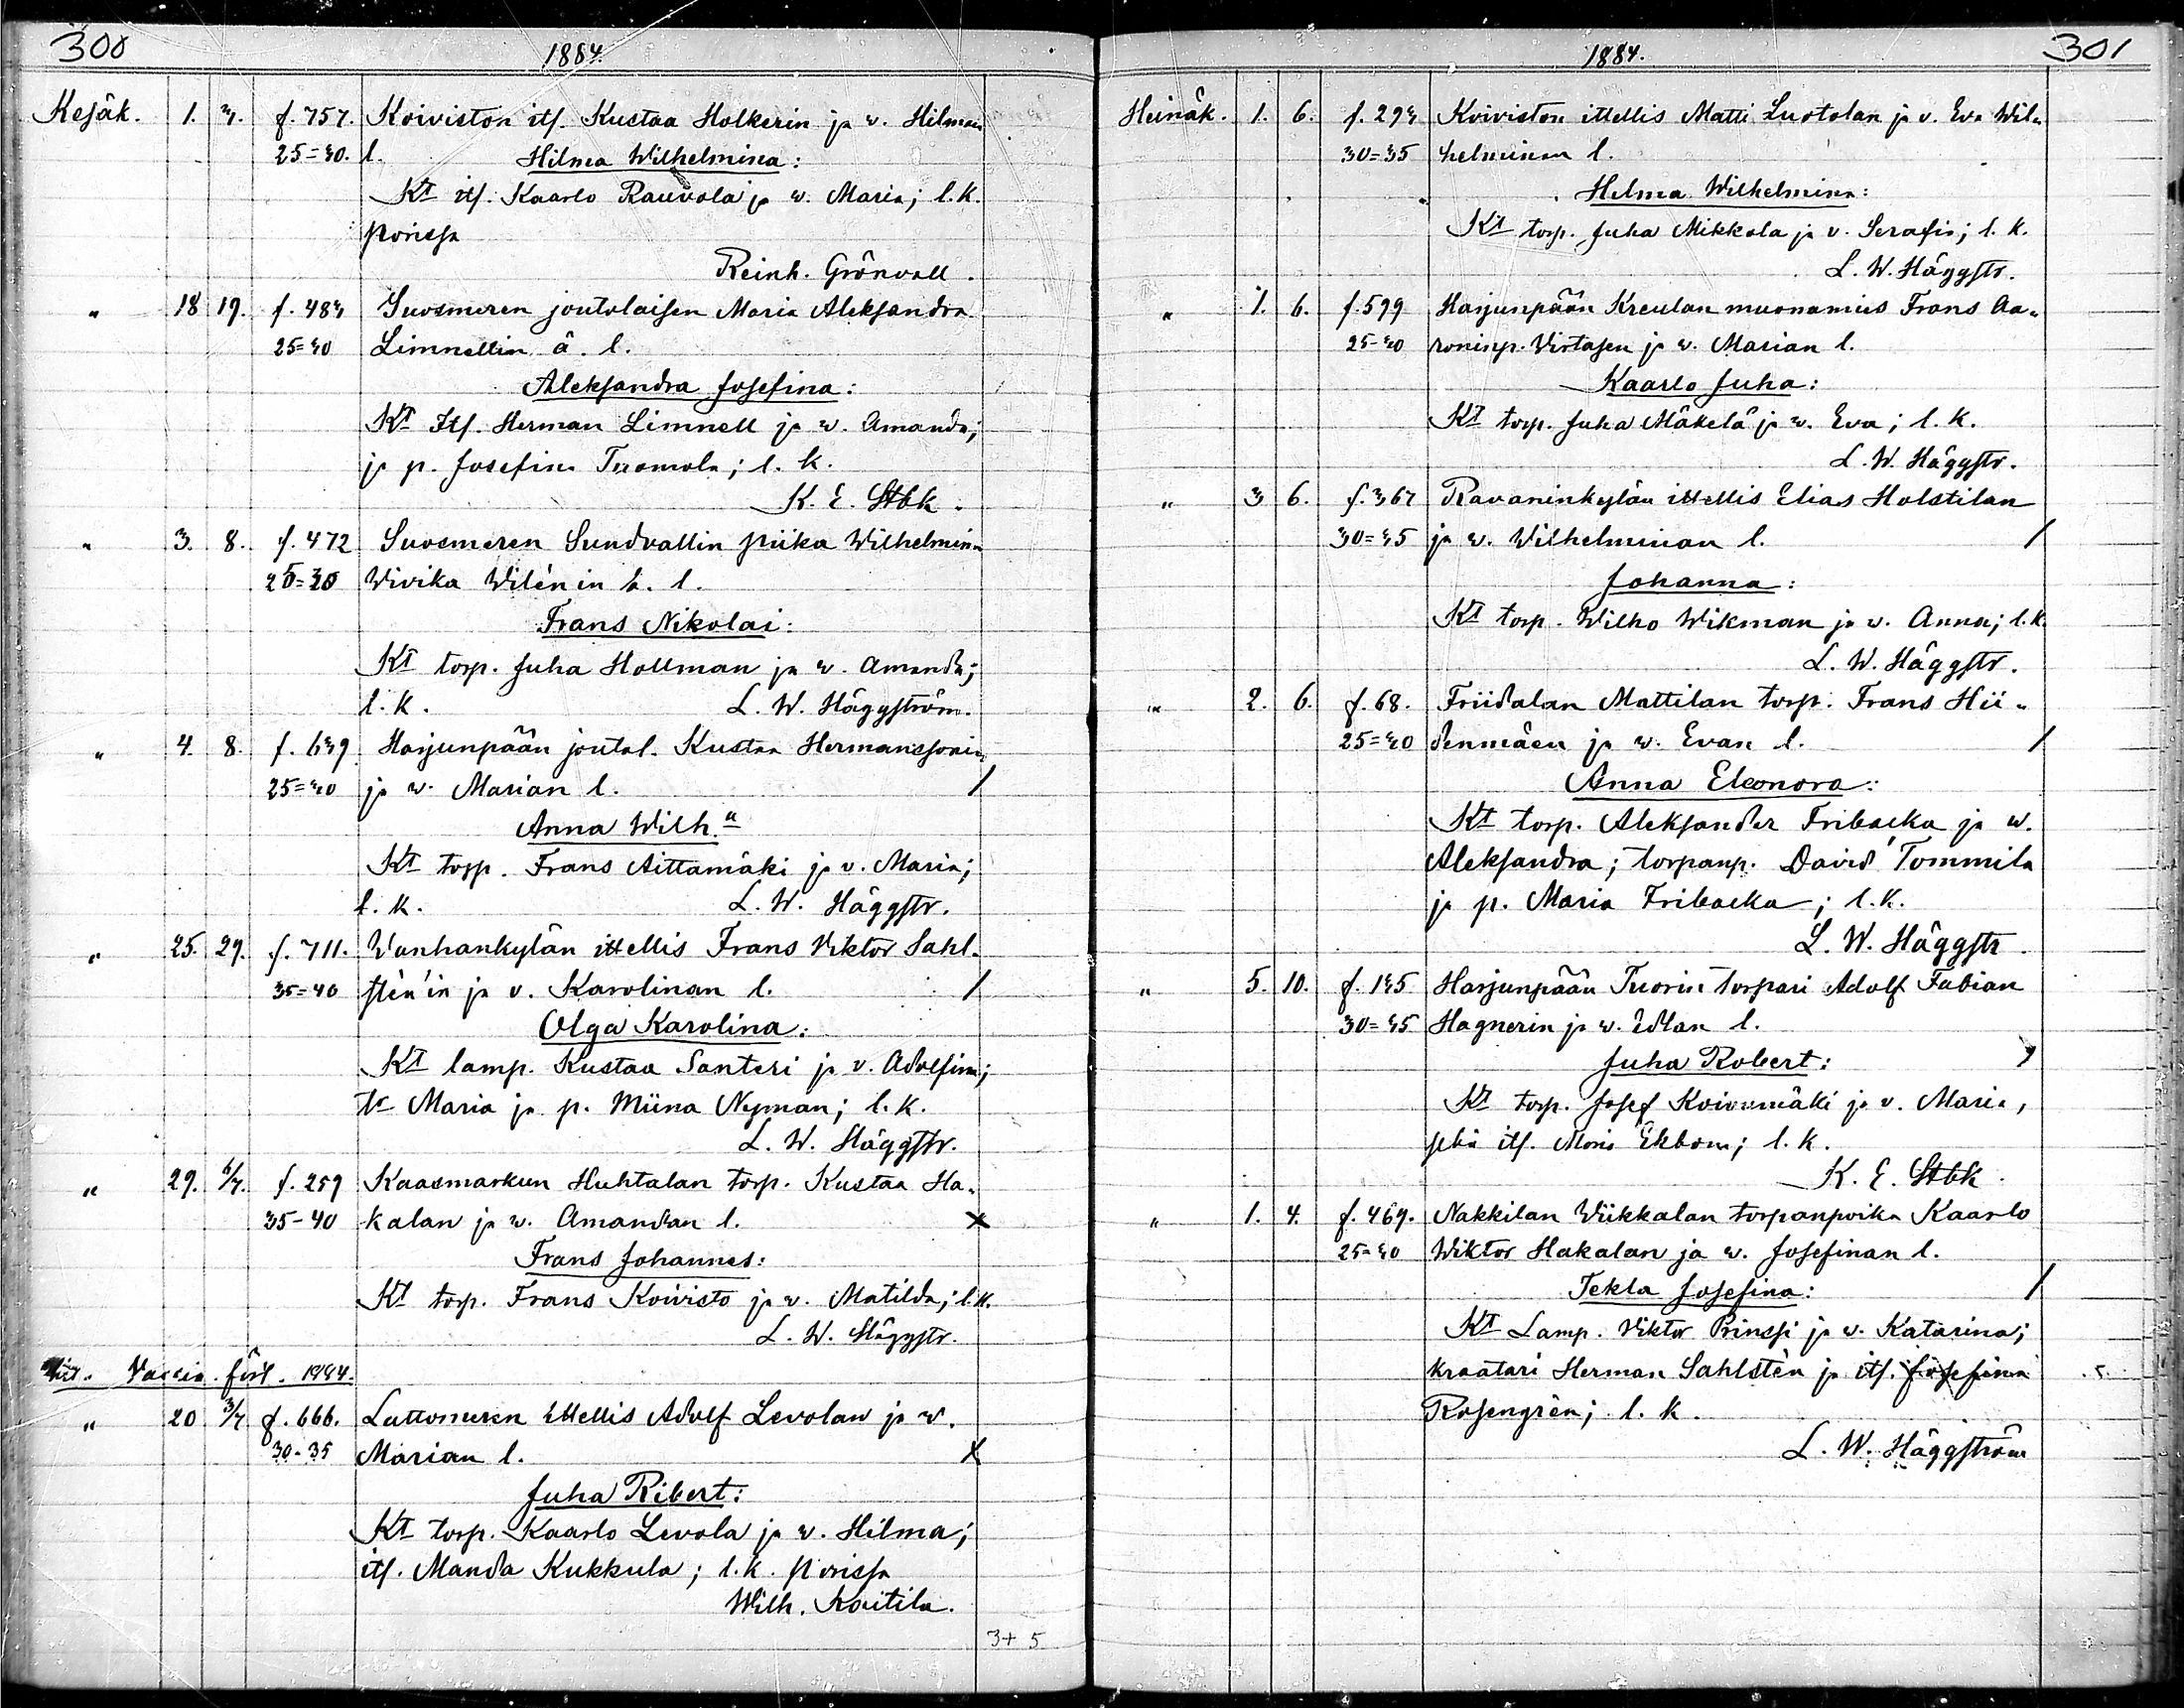 300
1884.
Kesäk. 1. 3. f. 757. Koiviston itl. Kustaa Holkerin ja v. Hilman
25=30. l. Hilma Wilhelmina:
Kt itl. Kaarlo Rauvola ja v. Maria; l. k.
porissa
Reinh. Grönvall.
" 18 19. f. 483 Suosmeren joutolaisen Maria Aleksandra
25=30 Limnellin ä. l.
Aleksandra Josefina:
Kt Itl. Herman Limnell ja v. Amanda;
ja p. Josefina Tuomola; l. k.
K. E. Stbk.
" 3. 8. f. 472 Suosmeren Sundvallin piika Wilhelmina
Wivika Wilénin l.
Frans Nikolai:
Kt torp. Juha Hollman ja v. Amanda;
l. k. L. W. Häggström.
" 4. 8. f. 639 Harjunpään joutol. Kustaa Hermanssonin
25=30 ja v. Marian l. /
Anna Wilh.a
Kt torp. Frans Aittamäki ja v. Maria;
l. k. L. W. Häggstr.
" 25. 29. f. 711. Wanhankylän ittellis Frans Viktor Sahl-
35=40 stén'in ja v. Karolinan l. /
Olga Karolina:
Kt lamp. Kustaa Santeri ja v. Adolfina;
tr Maria ja p. Miina Nyman; l. k.
L. W. Häggstr.
" 29. 6/7. f. 259 Kaasmarkun Huhtalan torp. Kustaa Ha-
35-40 kalan ja v. Amandan l. x
Frans Johannes:
Kt torp. Frans Koivisto ja v. Matilda; l. k.
L. W. Häggstr.
1884.
" 20 3/7. f. 666. Lattomeren Ittellis Adolf Levolan ja v.
30-35 Marian l. x
Juha Ribert:
Kt torp. Kaarlo Levola ja v. Hilma;
itl. Manda Kukkula; l. k. porissa
Wilh. Koitila.
3+ 5
1884.
301
Heinäk. 1. 6. f. 293 Koiviston ittellis Matti Luotolan ja v. Eva Wil-
30=35 helminan l.
Helma Wilhelmina:
Kt torp. Juha Mikkola ja v. Serafia; l. k.
L. W. Häggstr.
" 1. 6. f. 599 Harjunpään Kreulan muonamies Frans Aa-
25-30 roninp. Virtasen ja v. Marian l.
Kaarlo Juha:
Kt torp. Juha Mäkelä ja v. Eva; l. k.
L. W. Häggstr.
" 3 6. f. 367 Ravaninkylän ittellis Elias Holstilan
30=35 ja v. Wilhelminan l. /
Johanna:
Kt torp. Wilho Wikman ja v. Anna; l. k.
L. W. Häggstr.
" 2. 6. f. 68. Friidalan Mattilan torp. Frans Hii-
25=30 denmäen ja v. Evan l. /
Anna Eleonora:
Kt torp. Aleksander Fribacka ja v.
Aleksandra; torpanp. David Tommila
ja p. Maria Fribacka; l. k.
L. W. Häggstr.
" 5. 10. f. 135 Harjunpään Tuorin torpari Adolf Fabian
30=35 Hagnerin ja v. Edlan l.
Juha Robert: /
Kt torp. Josef Koivumäki ja v. Maria,
sekä itl. Moris Ekbom; l. k.
K. E. Stbk.
" 1. 4. f. 469. Nakkilan Wiikkalan torpanpoika Kaarlo
25=30 Wiktor Hakalan ja v. Josefinan l.
Tekla Josefina: /
Kt Lamp. Viktor Prinssi ja v. Katarina;
kraatari Herman Sahlstén ja itl. Josefina
Rosengrén; l. k.
L. W. Häggström